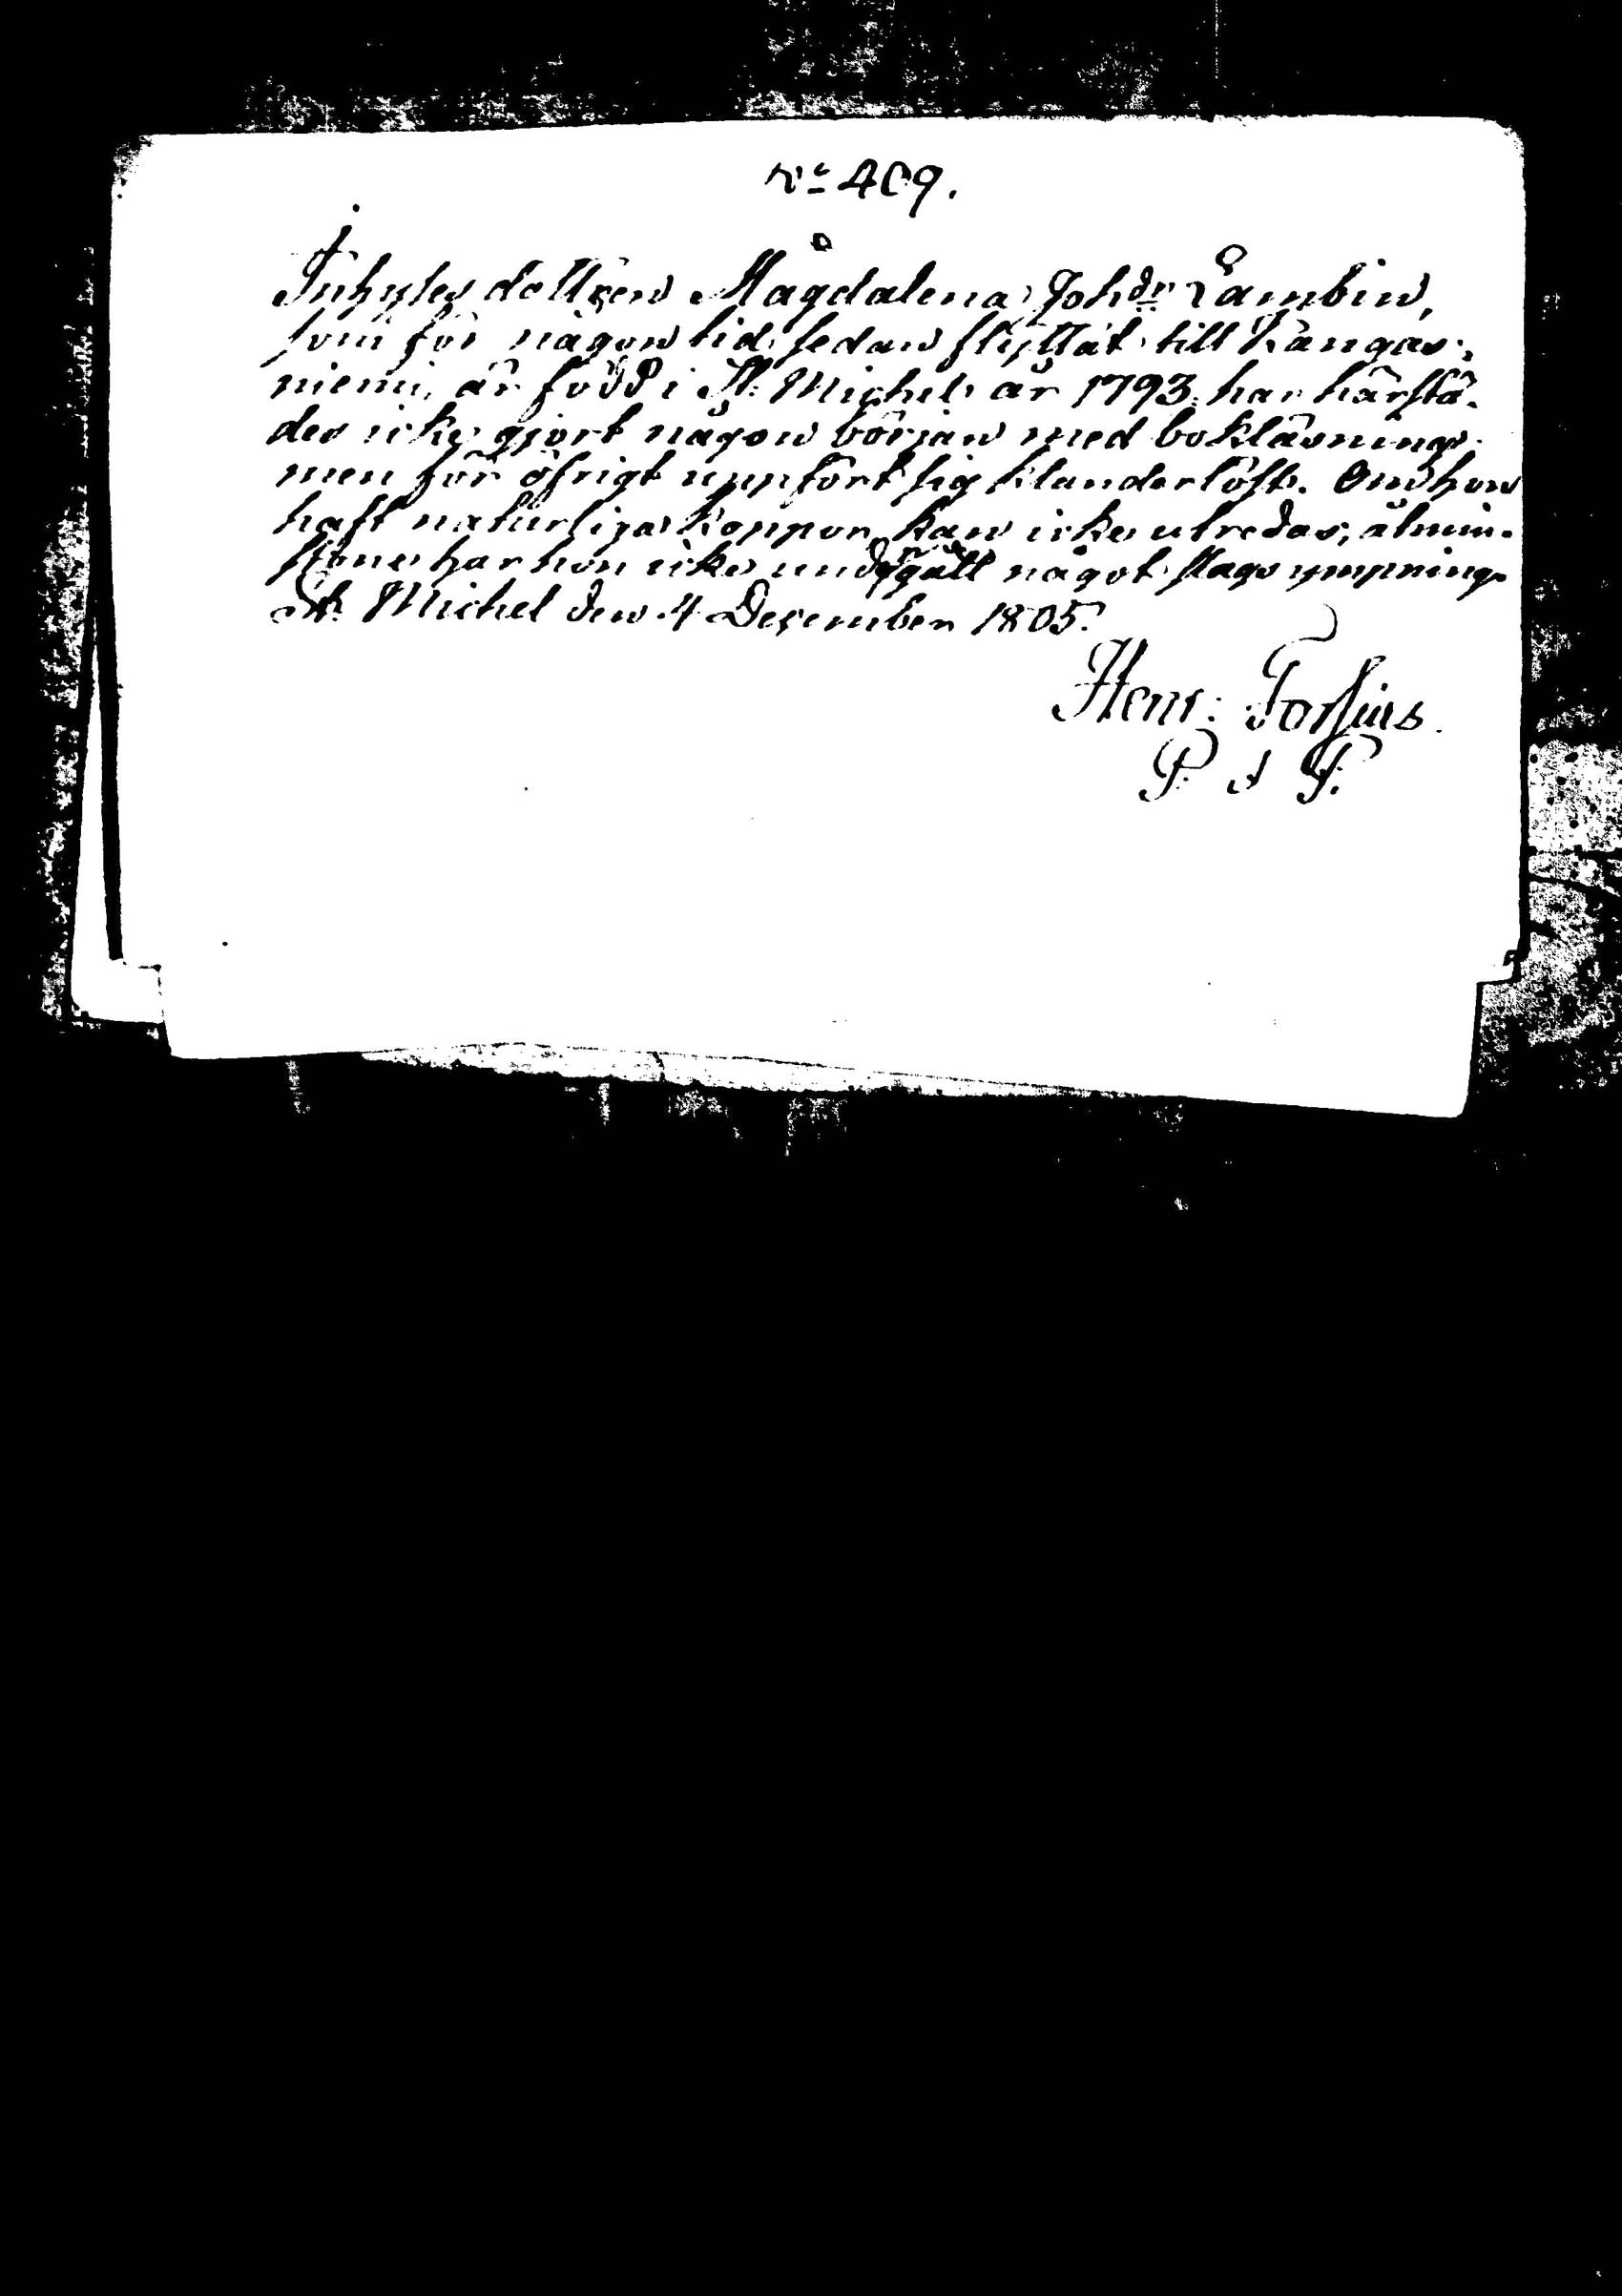 No 409.
Inhyses dottren Magdalena Johdr Lambin,
som för någon tid sedan flyttat till Kangas-
niemi, är född i St. Michel år 1793, har härstä-
des icke gjort någon början med bokläsning
men för öfrigt uppfört sig klanderlöst. Om hon
haft naturliga koppor kan icke utredas, åtmin-
stone har hon icke undergått något slags ympning.
St. Michel den 4 December 1805.
Henr: Forsius.
P. A P.